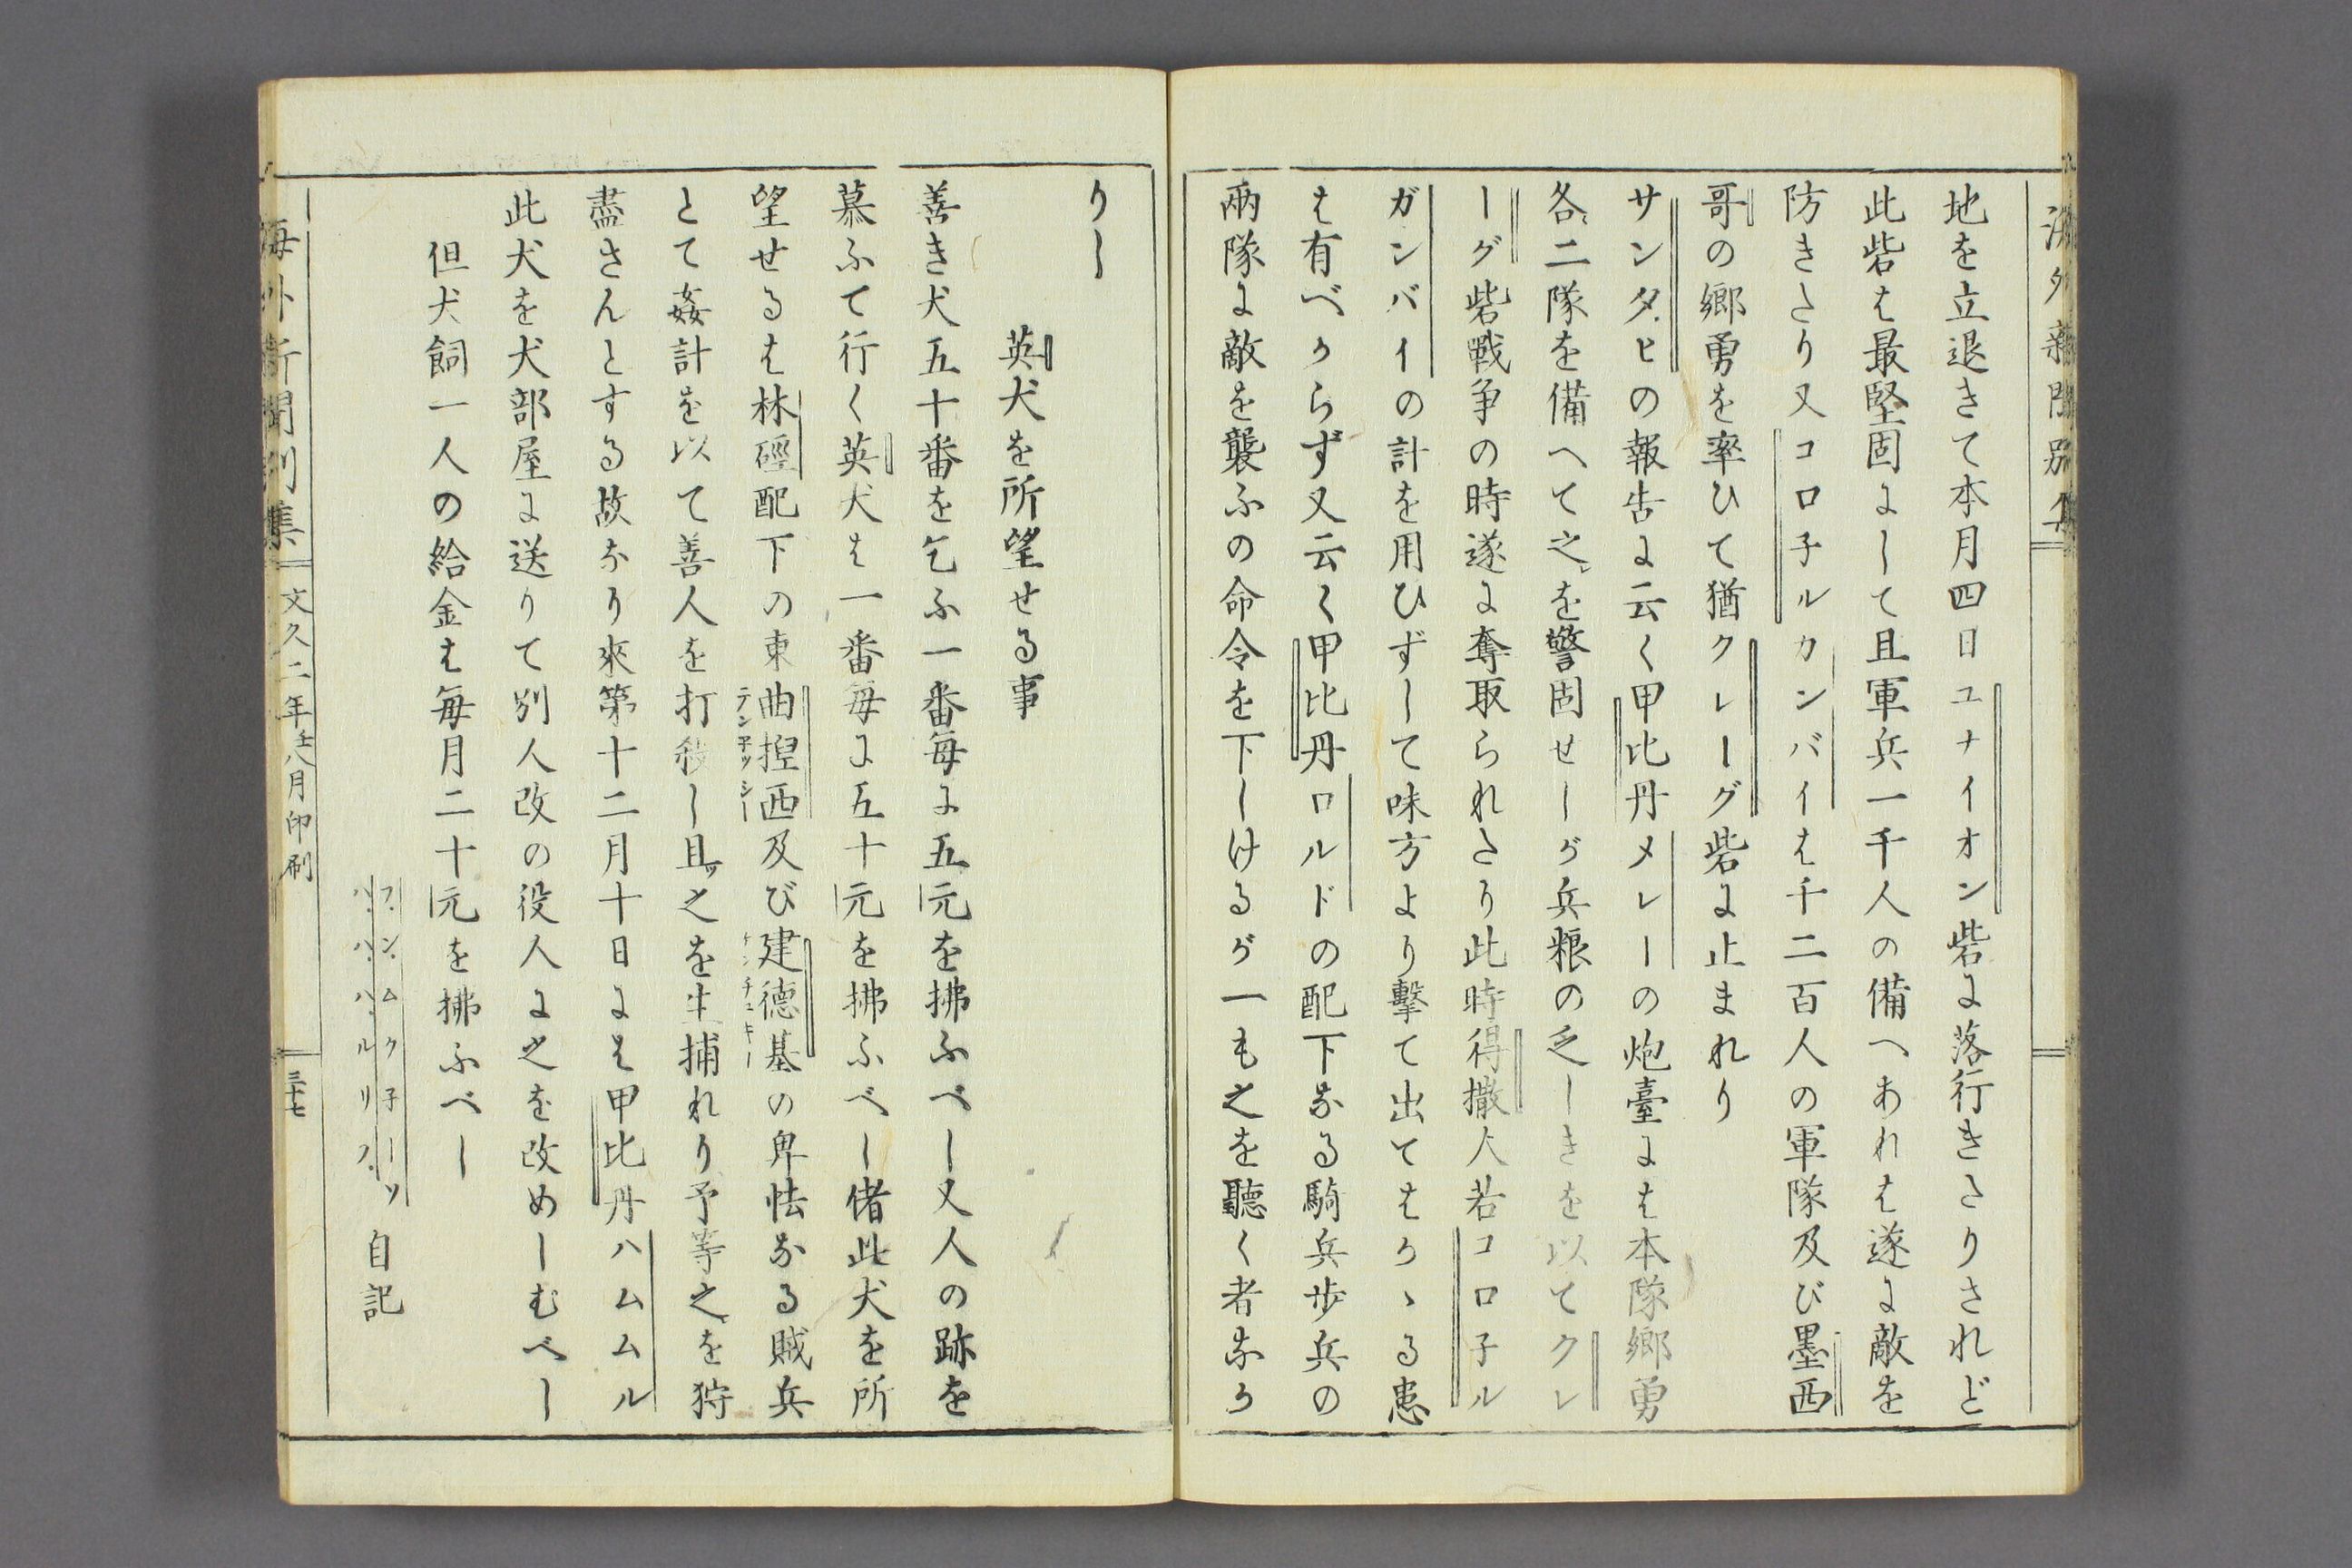 海外新聞別集
地を立退きて本月四日ユナイオン砦に落行きたりされど
此砦は最堅固にして且軍兵一千人の備へあれは遂に敵を
防きたり又コロ子ルカンバイは千二百人の軍隊及び墨西
哥の郷勇を率ひて猶クレーグ砦に止まれり
サンタヒの報告に云く甲比丹メレーの炮臺には本隊郷勇
各二隊を備へて之を警固せしが兵粮の乏しきを以てクレ
ーグ砦戰争の時遂に奪取られたり此時得撒人若コロ子ル
ガンバイの計を用ひずして味方より擊て出てはかゝる患
は有べからず又云く甲比丹ロルドの配下なる騎兵歩兵の
兩隊に敵を襲ふの命令を下しけるが一も之を聽く者なか
りし
英犬を所望せる事
善き犬五十番を乞ふ一番毎に五元を拂ふべし又人の跡を
慕ふて行く英犬は一番毎に五十元を拂ふべし偖此犬を所
望せるは林硜配下の東曲揑西及び建德基の卑怯なる賊兵
テン子ッシー
ケンチュキー
とて姦計を以て善人を打殺し且ッ之を生捕れり予等之を狩
盡さんとする故なり來第十二月十日には甲比丹ハムムル
此犬を犬部屋に送りて別人改の役人に之を改めしむべし
但犬飼一人の給金は毎月二十元を拂ふべし
フ.ン.ムク子ーッ
ハ.ハ.ハ.ルリス. 自記
海外新聞別集
文久二年壬八月印刷
三十七